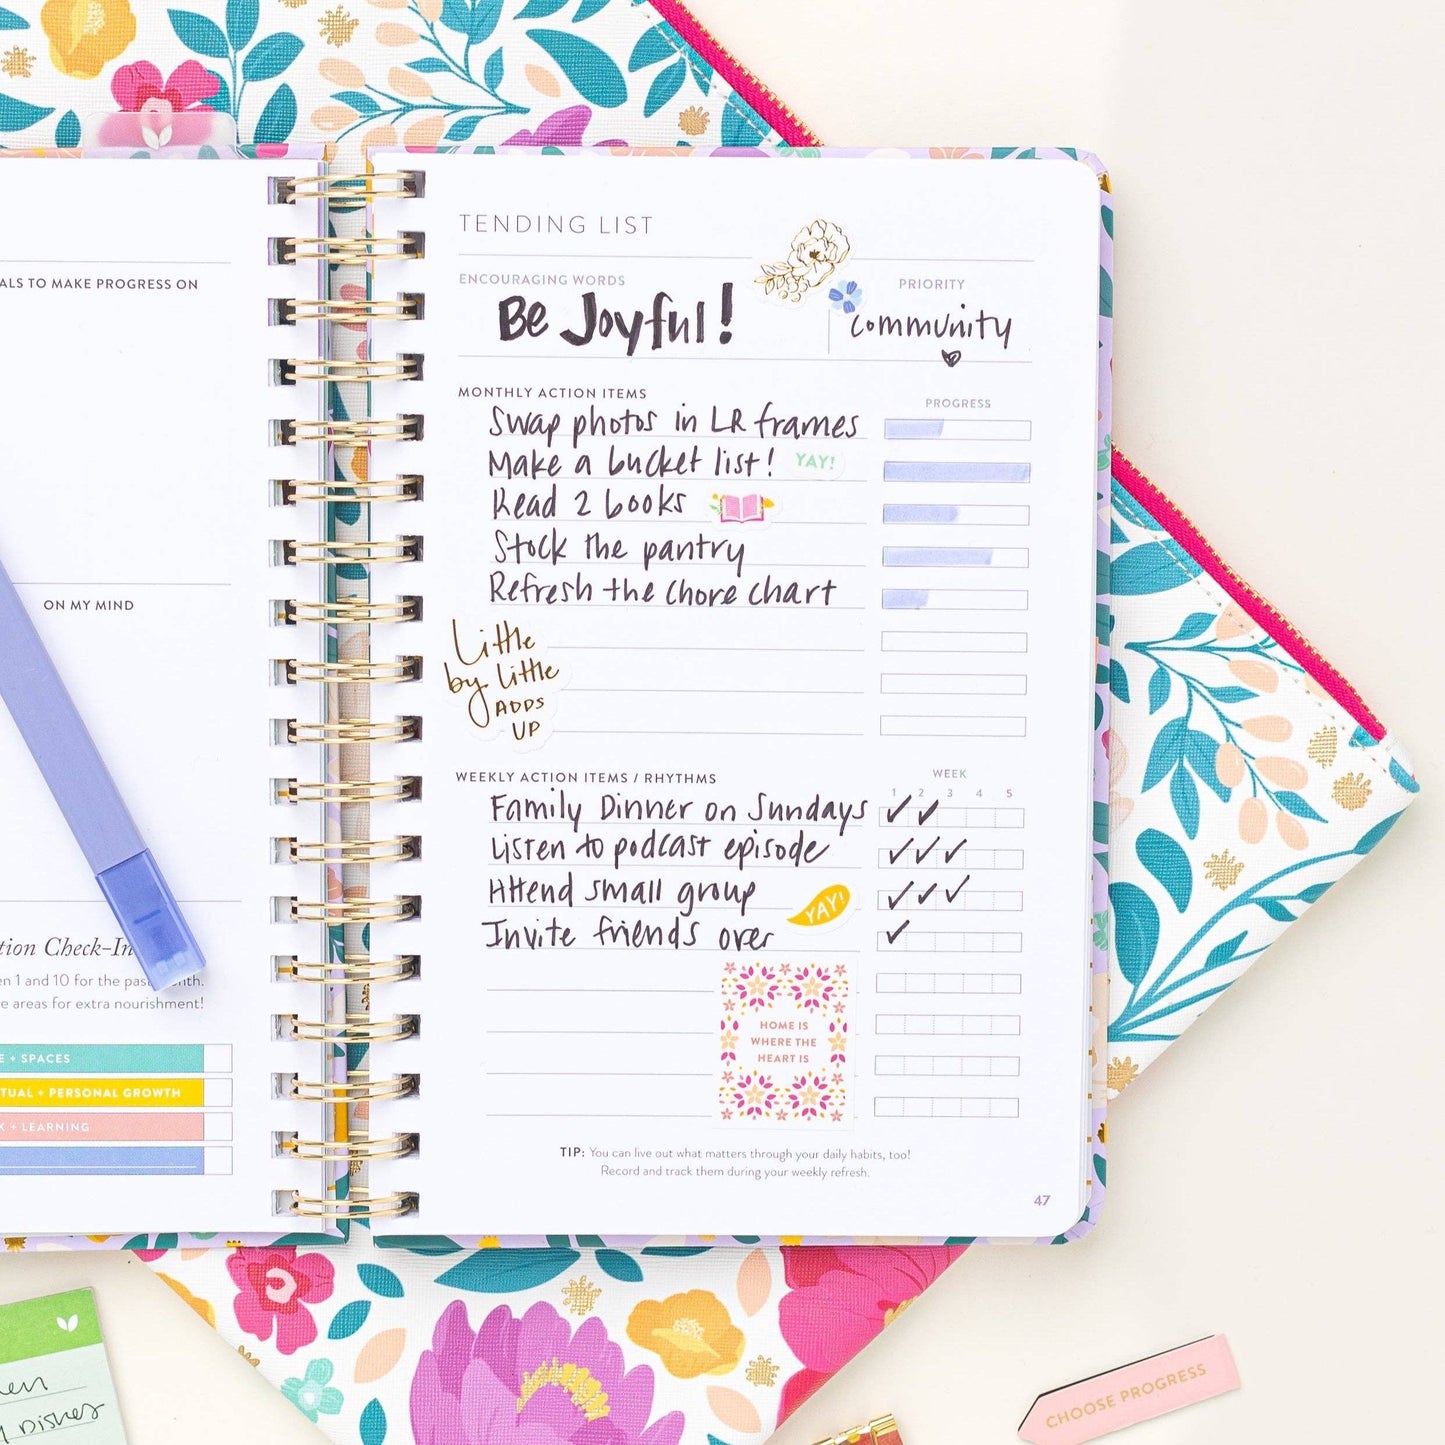 ALS TO MAKE PROGRESS ON
ON MY MIND
tion Check-In
en 1 and 10 for the past month.
e areas for extra nourishment!
E + SPACES
TUAL + PERSONAL GROWTH
K + LEARNING
TENDING LIST
ENCOURAGING WORDS
Be Joyful!
PRIORITY
community
MONTHLY ACTION ITEMS
PROGRESS
Swap photos in LR frames
Make a bucket list! YAY!
Read 2 books
Stock the pantry
Refresh the chore chart
Little
by Little
ADDS
UP
WEEKLY ACTION ITEMS / RHYTHMS
WEEK
1 2 3 4 5
Family Dinner on Sundays
Listen to podcast episode
Attend small group
YAY!
Invite friends over
HOME IS
WHERE THE
HEART IS
TIP: You can live out what matters through your daily habits, too!
Record and track them during your weekly refresh.
47
Dishes
CHOOSE PROGRESS